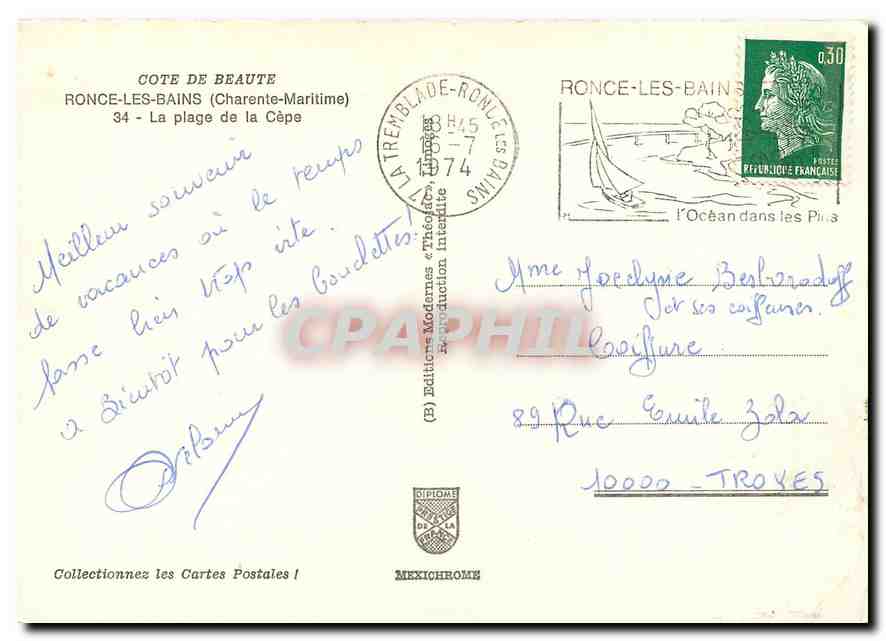 COTE DE BEAUTE
RONCE-LES-BAINS (Charente-Maritime)
34 - La plage de la Cèpe
Meilleur souvenir
de vacances où le temps
passe bien trop vite.
a bientôt pour les boudettes!
17 LA TREMBLADE-RONCE LES BAINS
18H45
16-7
1974
RONCE-LES-BAINS
l'Océan dans les Pins
0,30
POSTES
REPUBLIQUE FRANÇAISE
Mme Jocelyne
et ses coiffeuses.
Coiffure
89 Rue Emile Zola
10000 - TROYES
(B) Editions Modernes « Théojac », Limoges
Reproduction Interdite
CPAPHIL
DIPLOME
PRESTIGE
DE LA
FRANCE
Collectionnez les Cartes Postales !
MEXICHROME